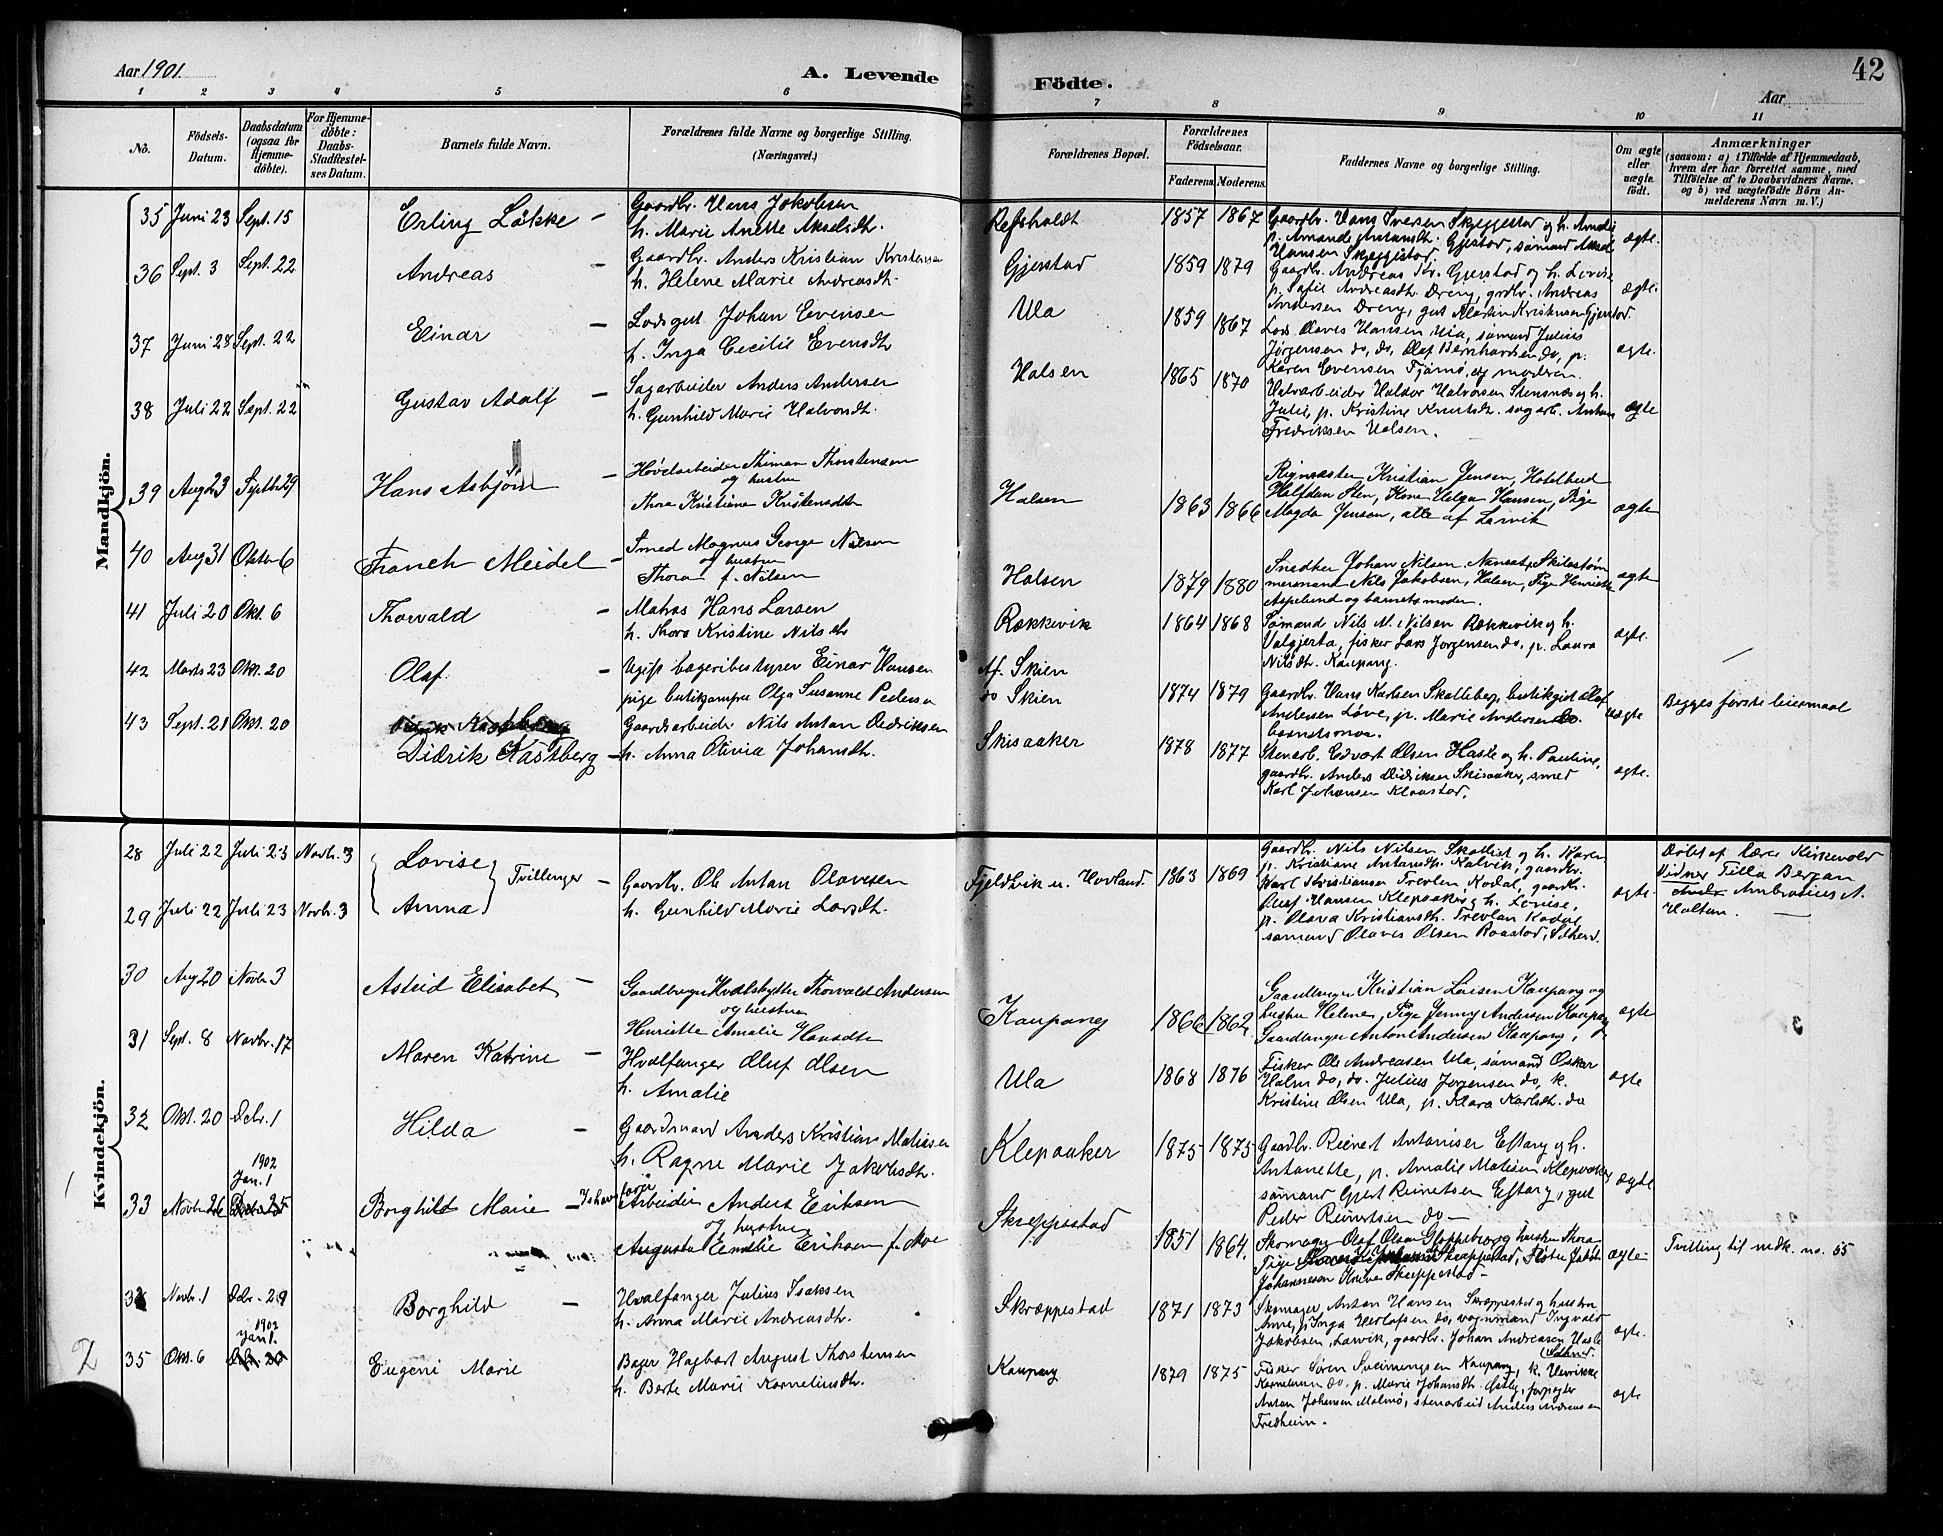 Aar 1901.
A. Levende
Födte.
42
Aar
1 2 3 4 5 6
7 8 9 10 11
No.
Födsels-
Datum.
Daabsdatum
(ogsaa for
Hjemme-
döbte).
For Hjemme-
döbte:
Daabs-
Stadfæstel-
ses Datum.
Barnets fulde Navn.
Forældrenes fulde Navne og borgerlige Stilling.
(Næringsvei.)
Forældrenes Bopæl.
Forældrenes
Födselsaar.
Faderens.
Moderens.
Faddernes Navne og borgerlige Stilling.
Om ægte
eller
uægte
födt.
Anmærkninger
(saasom: a) i Tilfælde af Hjemmedaab,
hvem der har forrettet samme, med
Tilföielse af to Daabsvidners Navne,
og b) ved uægtefödte Börn An-
melderens Navn m. V.)
Mandkjön.
35 Juni 23 Sept. 15 Erling Løkke –
Gaardbr. Hans Jakobsen
h. Marie Anette Akselsdtr.
Refsholdt 1857 1867
Gaardbr. Hans Iversen Skjeggestad og h. Amalie
p. Amanda Antonsdtr. Gjerstad, sømand Aksel
Hansen Skjeggestad.
ægte.
36 Sept. 3 Sept. 22 Andreas –
Gaardbr. Anders Kristian Kristensen
h. Helene Marie Andreasdtr.
Gjerstad 1859 1879
Gaardbr. Andreas Kr. Gjerstad og h. Lovise
p. Sofie Andreasdtr. Dreng, grdbr. Andreas
Andersen Dreng, gut Martin Kristensen Gjerstad.
ægte.
37 Juni 28 Sept. 22 Einar –
Lodsgut Johan Evensen
h. Inga Cecilie Evensdtr
Ula 1859 1867
Lods Olaves Hansen, Ula, sømand Julius
Jørgensen do, do, Olaf Bernhardsen do, p.
Karen Evensen Tjømø, og modren.
ægte.
38 Juli 22 Sept. 22 Gustav Adolf –
Sagarbeider Anders Andersen
h. Gunhild Marie Halvorsdtr.
Halsen 1865 1870
Halvor Halvorsen Stensnæs og h.
Julie, p. Kristine Knutsdtr. sagarb. Anton
Fredriksen Halsen.
ægte
39 Aug 23 Septbr 29 Hans Asbjørn –
Høvelarbeider Thorstensen
og hustru
Thora Kristiane Kristensdtr
Halsen 1863 1866
Kristian Jensen,
Halfdan Sten, Kone Helga Hansen, Pige
Magda Jensen, alle af Larvik
ægte
40 Aug 31 Oktbr 6 Meidel –
Smed Magnus George Nilsen
og hustru
Thora f. Nilsen
Halsen 1879 1880
Snedker Johan Nilsen, Nanset, Skibstøm
mermand Nils Jakobsen, Halsen, Pige Henriette
Aspelund og barnets moder.
ægte
41 Juli 20 Okt. 6 Thorvald –
Matros Hans Larsen
h. Thora Kristine Nilsdtr
Rækkevik 1864 1868
Sømand Nils M. Nilsen Rækkevik og h.
Valgjerta, fisker Lars Jørgensen do, p. Laura
Nilsdtr. Kaupang.
ægte.
42 Marts 23 Okt. 20 Olaf –
Ugift bageribestyrer Einar Hansen
pige butikjomfru Olga Susanne Pedersen
Af. Skien
do Skien
1874 1879
Gaardbr. Hans Karlsen Skalleberg, Olaf
Andersen Løve, p. Marie Andersen do.
barnets mor.
uægte
Begges første leiermaal
43 Sept. 21 Okt. 20
Didrik Kastberg –
Gaardsarbeider Nils Anton Didriksen
h. Anna Olivia Johansdtr.
Skisaaker 1878 1877
Stenarb. Edvart Olsen Haslé og h. Pauline,
gaardbr. Anders Didriksen Skisaaker, smed
Karl Johansen Klaastad.
ægte.
Kvindekjön.
28 Juli 22 Juli 23 Novbr. 3 Lovise
Tvillinger –
29 Juli 22 Juli 23 Novbr. 3 Anna
Gaardbr. Ole Anton Olavesen
h. Gunhild Marie Larsdtr.
Fjeldvik u. Hovland. 1863 1869
Gaardbr. Nils Nilsen og h. Karen
p. Kristiane Antonsdtr. Kalvik, gaardbr.
Karl Kristiansen Trevlen Kodal, gaardbr.
Oluf Hansen Klepaaker og h. Lovise,
p. Olava Kristiansdtr. Trevlan Kodal,
sømand Olaves Olsen Raastad,
ægte.
Døbt af Lærer Kirkevold
Vidner Tilla Bergan
Ambrosius A.
Holtan. —
30 Aug 20 Novbr 3 Astrid Elisabet –
Gaardbruger Hvalskytter Thorvald Andersen
og hustru
Henriette Amalie Hansdtr
Kaupang 1866 1862
Gaardbruger Kristian Larsen Kaupang og
hustru Helene, Pige Jenny Andersen Kaupang
Gaardbruger Anton Andersen Kaupang,
ægte
31 Sept. 8 Novbr. 17 Maren Katrine –
Hvalfanger Oluf Olsen
h. Amalie
Ula 1868 1876
Fisker Ole Andreasen Ula, sømand Oskar
Holm do, do. Julius Jørgensen do, k.
Kristine Olsen Ula, p. Klara Karlsdtr. do
ægte
32 Okt. 20 Debr. 1 Hilda –
Gaardmand Anders Kristian Matisen
h. Ragne Marie Jakobsdtr.
Klepaaker 1875 1875
Gaardbr. Reinert Antonisen Eftang og h.
Antonette, p. Amalie Matisen Klepaaker
sømand Gjert Reinertsen Eftang, gut
Peder Reinertsen do –
ægte
33 Novbr 26 1902 Jan. 1 Borghild Marie –
Arbeider Anders Eriksen
og hustru
Augusta Emelie Eriksen f. Moe
Skreppestad 1851 1864.
Skomager Olaf Olsen Gloppe og hustru Thora
Pige Skræppestad,
Johannesen Skreppestad –
ægte
Tvilling til mdk. no. 55
34 Novbr. 1 Debr. 29 Borghild –
Hvalfanger Julius Isaksen
h. Anna Marie Andreasdtr.
Skræppestad 1871 1873
Skomager, Anton Hansen Skræppestad og hustru
Anne, p. Inga Herlofsen do, vognmand Ingvald
Jakobsen, Larvik, gaardbr. Johan Andreasen Hasle
ægte.
35 Okt. 6 1902 Jan 1. Eugeni Marie
Bager Hagbart August Thorstensen
h. Berte Marie Korneliusdtr.
Kaupang 1879 1875
Fisker Søren Kaupang, k. Henrikke
Kornelius do, p. Marie Johansdtr. Østby, forpagter
Anton Johansen Malmø, stenarbeid Anders Andreasen
Fredheim.
ægte
2